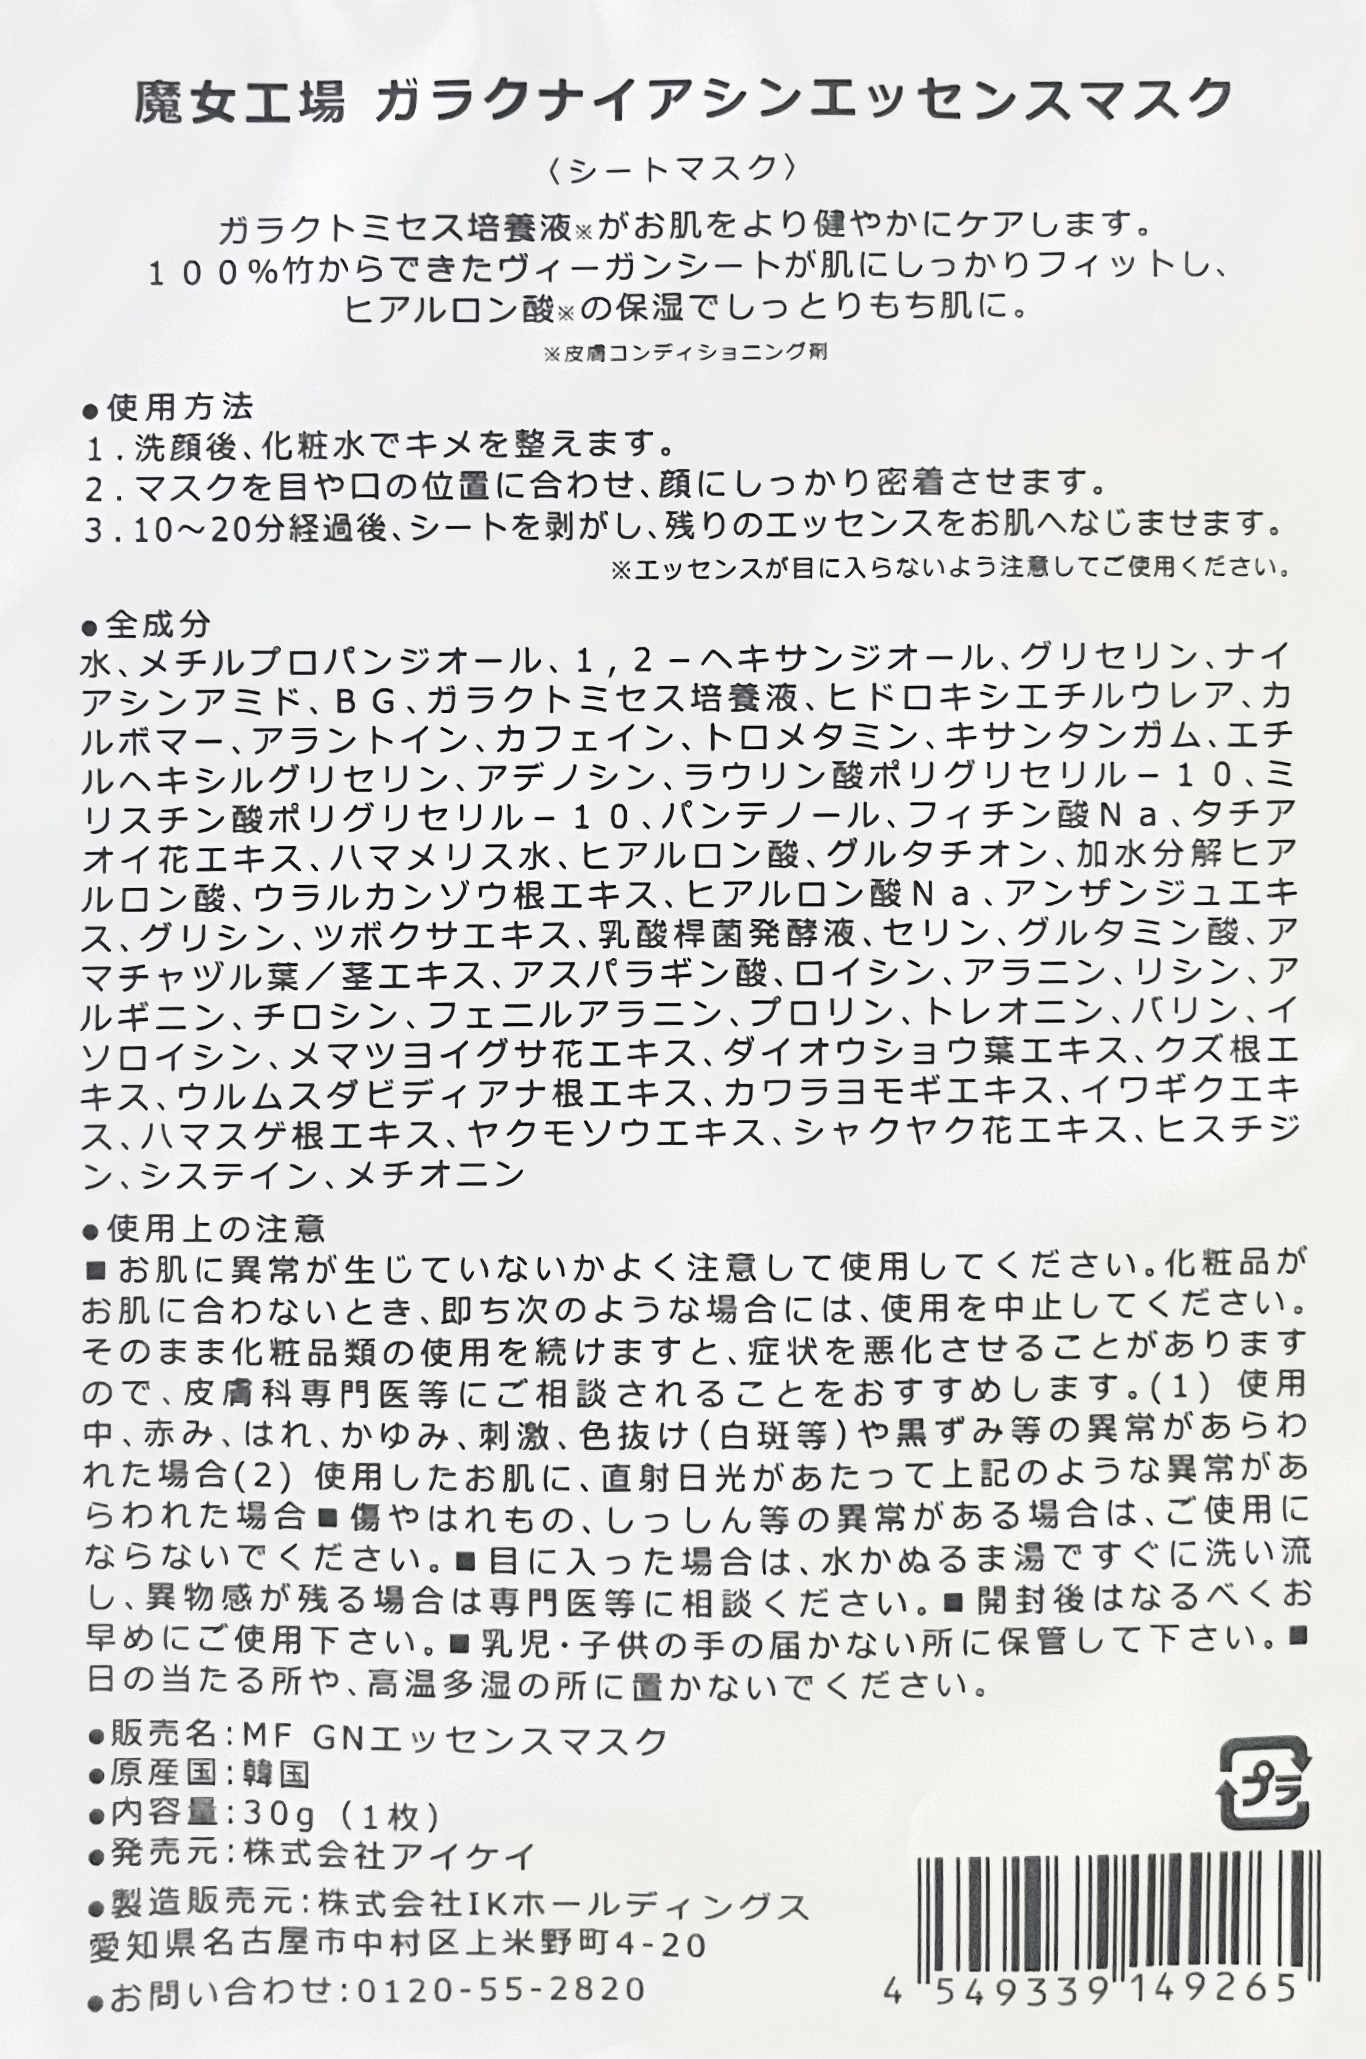 魔女工場 ガラクナイアシンエッセンスマスク
〈シートマスク〉
ガラクトミセス培養液※がお肌をより健やかにケアします。
100%竹からできたヴィーガンシートが肌にしっかりフィットし、
ヒアルロン酸※の保湿でしっとりもち肌に。
※皮膚コンディショニング剤
●使用方法
1.洗顔後、化粧水でキメを整えます。
2.マスクを目や口の位置に合わせ、顔にしっかり密着させます。
3.10〜20分経過後、シートを剥がし、残りのエッセンスをお肌へなじませます。
※エッセンスが目に入らないよう注意してご使用ください。
●全成分
水、メチルプロパンジオール、1,2－ヘキサンジオール、グリセリン、ナイ
アシンアミド、BG、ガラクトミセス培養液、ヒドロキシエチルウレア、カ
ルボマー、アラントイン、カフェイン、トロメタミン、キサンタンガム、エチ
ルヘキシルグリセリン、アデノシン、ラウリン酸ポリグリセリル－10、ミ
リスチン酸ポリグリセリル－10、パンテノール、フィチン酸Na、タチア
オイ花エキス、ハマメリス水、ヒアルロン酸、グルタチオン、加水分解ヒア
ルロン酸、ウラルカンゾウ根エキス、ヒアルロン酸Na、アンザンジュエキ
ス、グリシン、ツボクサエキス、乳酸桿菌発酵液、セリン、グルタミン酸、ア
マチャヅル葉／茎エキス、アスパラギン酸、ロイシン、アラニン、リシン、ア
ルギニン、チロシン、フェニルアラニン、プロリン、トレオニン、バリン、イ
ソロイシン、メマツヨイグサ花エキス、ダイオウショウ葉エキス、クズ根エ
キス、ウルムスダビディアナ根エキス、カワラヨモギエキス、イワギクエキ
ス、ハマスゲ根エキス、ヤクモソウエキス、シャクヤク花エキス、ヒスチジ
ン、システイン、メチオニン
●使用上の注意
■お肌に異常が生じていないかよく注意して使用してください。化粧品が
お肌に合わないとき、即ち次のような場合には、使用を中止してください。
そのまま化粧品類の使用を続けますと、症状を悪化させることがあります
ので、皮膚科専門医等にご相談されることをおすすめします。(1) 使用
中、赤み、はれ、かゆみ、刺激、色抜け(白斑等)や黒ずみ等の異常があらわ
れた場合(2) 使用したお肌に、直射日光があたって上記のような異常があ
らわれた場合■傷やはれもの、しっしん等の異常がある場合は、ご使用に
ならないでください。■目に入った場合は、水かぬるま湯ですぐに洗い流
し、異物感が残る場合は専門医等に相談ください。■開封後はなるべくお
早めにご使用下さい。■乳児・子供の手の届かない所に保管して下さい。■
日の当たる所や、高温多湿の所に置かないでください。
●販売名:MF GNエッセンスマスク
●原産国:韓国
●内容量:30g (1枚)
●発売元:株式会社アイケイ
●製造販売元:株式会社IKホールディングス
愛知県名古屋市中村区上米野町4-20
●お問い合わせ:0120-55-2820
プラ
4 549339 149265